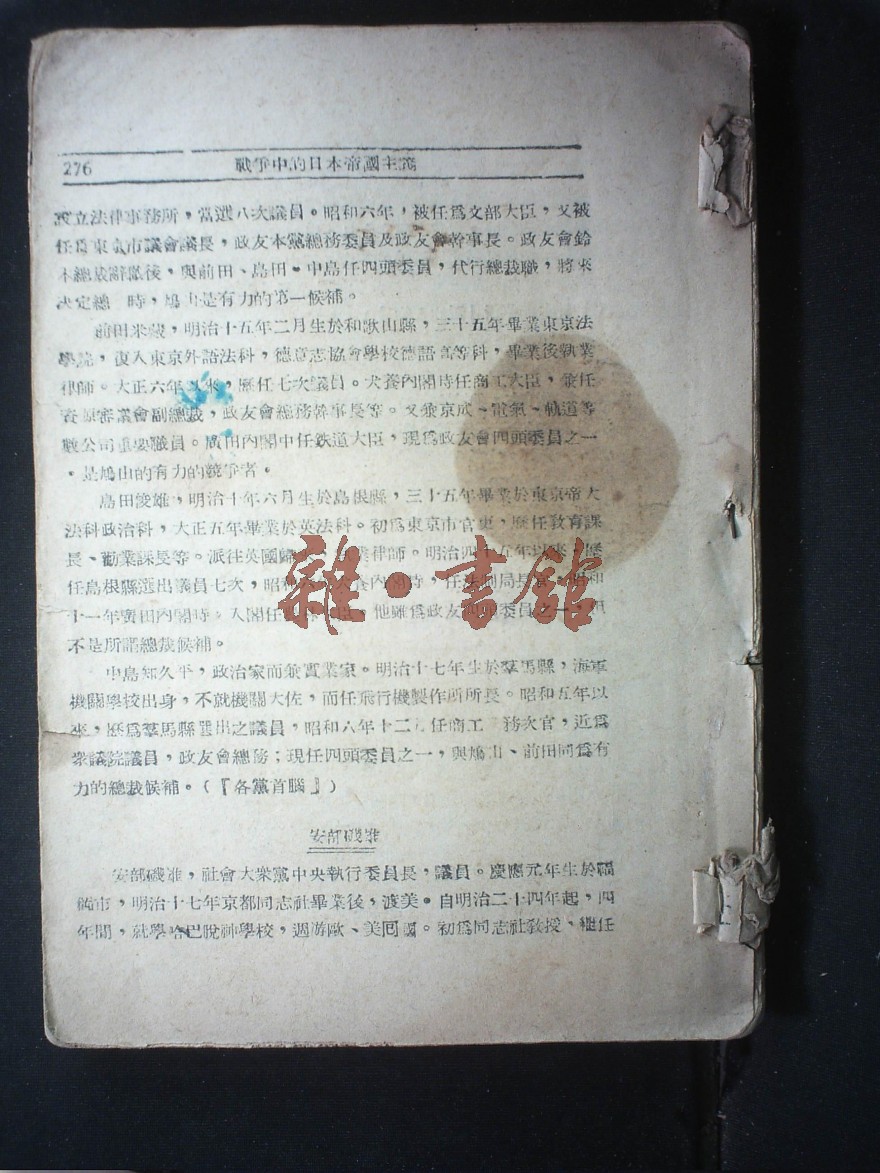 276 戰爭中的日本帝國主義
設立法律事務所，當選八次議員。昭和六年，被任爲文部大臣，又被
任爲東京市議會議長，政友本黨總務委員及政友會幹事長。政友會鈴
木總裁辭職後，與前田、島田、中島任四頭委員，代行總裁職，將來
决定總 時，鳩山是有力的第一候補。
前田米藏，明治十五年二月生於和歌山縣，三十五年畢業東京法
學院，復入東京外語法科，德意志協會學校德語高等科，畢業後執業
律師。大正六年以來，歷任七次議員。犬養內閣時任商工大臣，兼任
資源審議會副總裁，政友會總務幹事長等。又兼京成、電氣、軌道等
數公司重要職員。廣田內閣中任鉄道大臣，現爲政友會四頭委員之一
，是鳩山的有力的競爭者。
島田俊雄，明治十年六月生於島根縣，三十五年畢業於東京帝大
法科政治科，大正五年畢業於英法科。初爲東京市官吏，歷任敎育課
長、勸業課長等。派往英國歸 業律師。明治四十五年以來，歷
任島根縣選出議員七次，昭和六年犬養內閣時，任法制局長官。昭和
十一年廣田內閣時。入閣任 他雖爲政友 委員之一，但
不是所謂總裁候補。
中島知久平，政治家而兼實業家。明治十七年生於羣馬縣，海軍
機關學校出身，不就機關大佐，而任飛行機製作所所長。昭和五年以
來，歷爲羣馬縣選出之議員，昭和六年十二 任商工 務次官，近爲
衆議院議員，政友會總務；現任四頭委員之一，與鳩山、前田同爲有
力的總裁候補。（『各黨首腦』）
安部磯雄
安部磯雄，社會大衆黨中央執行委員長，議員。慶應元年生於福
岡市，明治十七年京都同志社畢業後，渡美。自明治二十四年起，四
年間，就學哈巴脫神學校，週游歐、美囘國。初爲同志社敎授，繼任
雜·書館